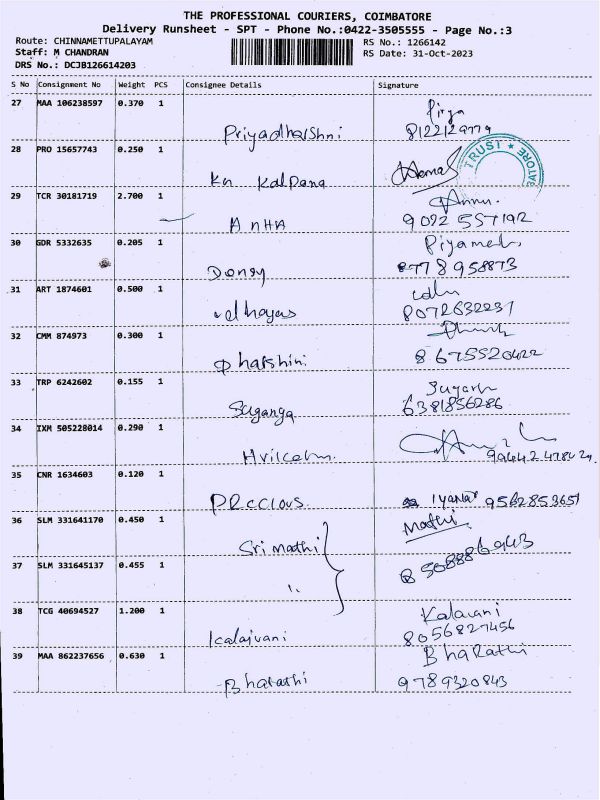 THE PROFESSIONAL COURIERS, COIMBATORE
Delivery Runsheet - SPT - Phone No.:0422-3505555 - Page No.:3
Route: CHINNAMETTUPALAYAM RS No.: 1266142
Staff: M CHANDRAN RS Date: 31-Oct-2023
DRS No.: DCJB126614203
S No Consignment No Weight PCS Consignee Details Signature
27 MAA 106238597 0.370 1 Priyadharshni
28 PRO 15657743 0.250 1 Kalpana
TRUST ★
29 TCR 30181719 2.700 1 ANHA
9092 557192
30 GDR 5332635 0.205 1
8778958873
31 ART 1874601 0.500 1
8072632231
32 CMM 874973 0.300 1 Dharshini
8675520422
33 TRP 6242602 0.155 1 Suganya
6381856286
34 IXM 505228014 0.290 1
35 CNR 1634603 0.120 1 Precious Iyanar 9562853651
36 SLM 331641170 0.450 1 Srimathi Mathi
37 SLM 331645137 0.455 1 "
38 TCG 40694527 1.200 1 Kalaivani Kalaivani
8056827456
39 MAA 862237656 0.630 1 Bharathi Bharathi
9789320843